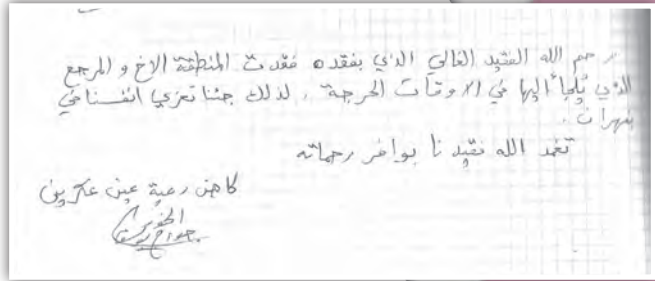 رحم الله الفقيد الغالي الذي بفقده فقدت المنطقة الاخ و المرجع
الذي يُلجأ اليها في الاوقات الحرجة . لذلك جئنا نعزي انفسنا في
بهران .
تغمد الله فقيدنا بوافر رحماته
كاهن رعية عين عكرين
الخوري